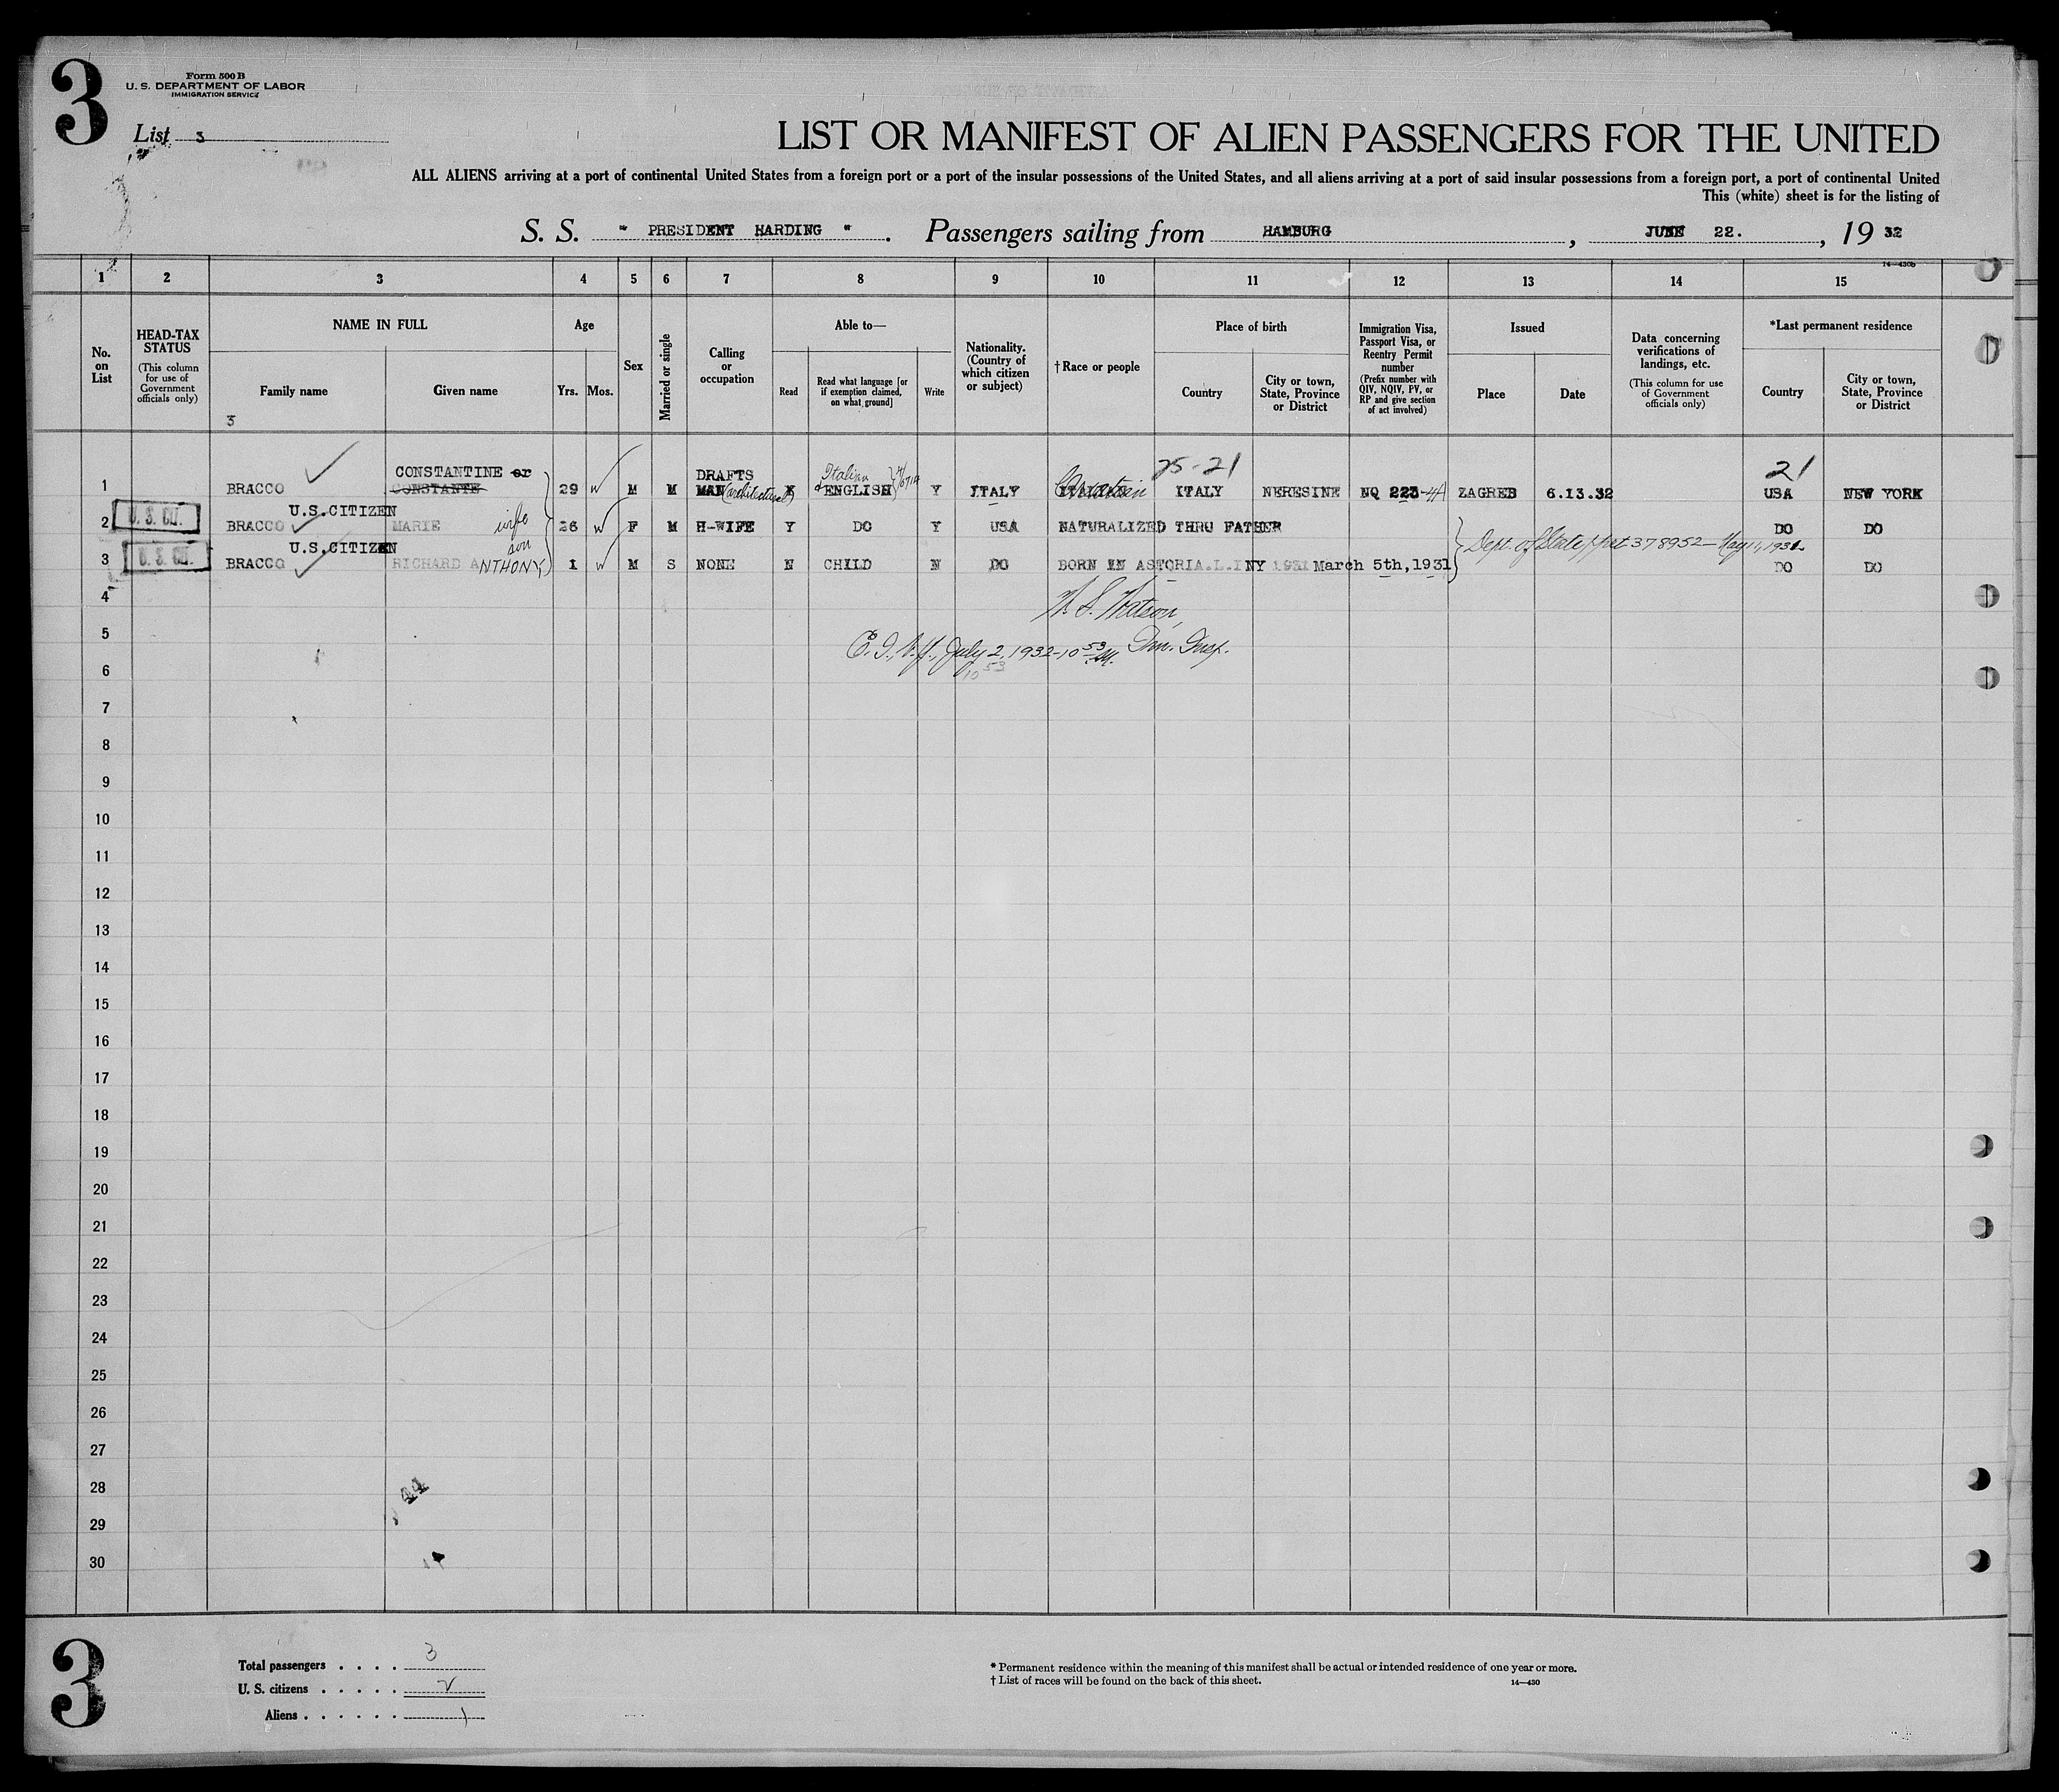 3
Form 500 B
U. S. DEPARTMENT OF LABOR
IMMIGRATION SERVICE
List 3
LIST OR MANIFEST OF ALIEN PASSENGERS FOR THE UNITED
ALL ALIENS arriving at a port of continental United States from a foreign port or a port of the insular possessions of the United States, and all aliens arriving at a port of said insular possessions from a foreign port, a port of continental United
This (white) sheet is for the listing of
S. S. " PRESIDENT HARDING " . Passengers sailing from HAMBURG , JUNE 22. , 19 32
14—430b
1 2 3 4 5 6 7 8 9 10 11 12 13 14 15
No. on List
HEAD-TAX STATUS
(This column for use of Government officials only)
NAME IN FULL
Family name
Given name
3
Age
Yrs. Mos.
Sex
Married or single
Calling or occupation
Able to—
Read
Read what language [or if exemption claimed, on what ground]
Write
Nationality. (Country of which citizen or subject)
†Race or people
Place of birth
Country
City or town, State, Province or District
Immigration Visa, Passport Visa, or Reentry Permit number
(Prefix number with QIV, NQIV, PV, or RP and give section of act involved)
Issued
Place
Date
Data concerning verifications of landings, etc.
(This column for use of Government officials only)
*Last permanent residence
Country
City or town, State, Province or District
CONSTANTINE or DRAFTS Italian 25-21 21
1 BRACCO CONSTANTE 29 W M M MAN (architectural) Y & ENGLISH Y ITALY Croatian ITALY NERESINE NQ 223-4 ZAGREB 6.13.32 USA NEW YORK
U.S.CITIZEN
2 U. S. CIT. BRACCO MARIE wife 26 W F M H-WIFE Y DO Y USA NATURALIZED THRU FATHER DO DO
U.S.CITIZEN son Dept. of State ppt 378952 - May 1, 1931
3 U. S. CIT. BRACCO RICHARD ANTHONY 1 W M S NONE N CHILD N DO BORN IN ASTORIA.L.I NY 1931 March 5th,1931 DO DO
4
W. S. Watson,
5
July 2, 1932-10 53 Imn. Insp.
10 53
6
7
8
9
10
11
12
13
14
15
16
17
18
19
20
21
22
23
24
25
26
27
28
44
29
30
3
Total passengers . . . . 3
U. S. citizens . . . . . 2
Aliens . . . . . . 1
* Permanent residence within the meaning of this manifest shall be actual or intended residence of one year or more.
† List of races will be found on the back of this sheet.
14—430